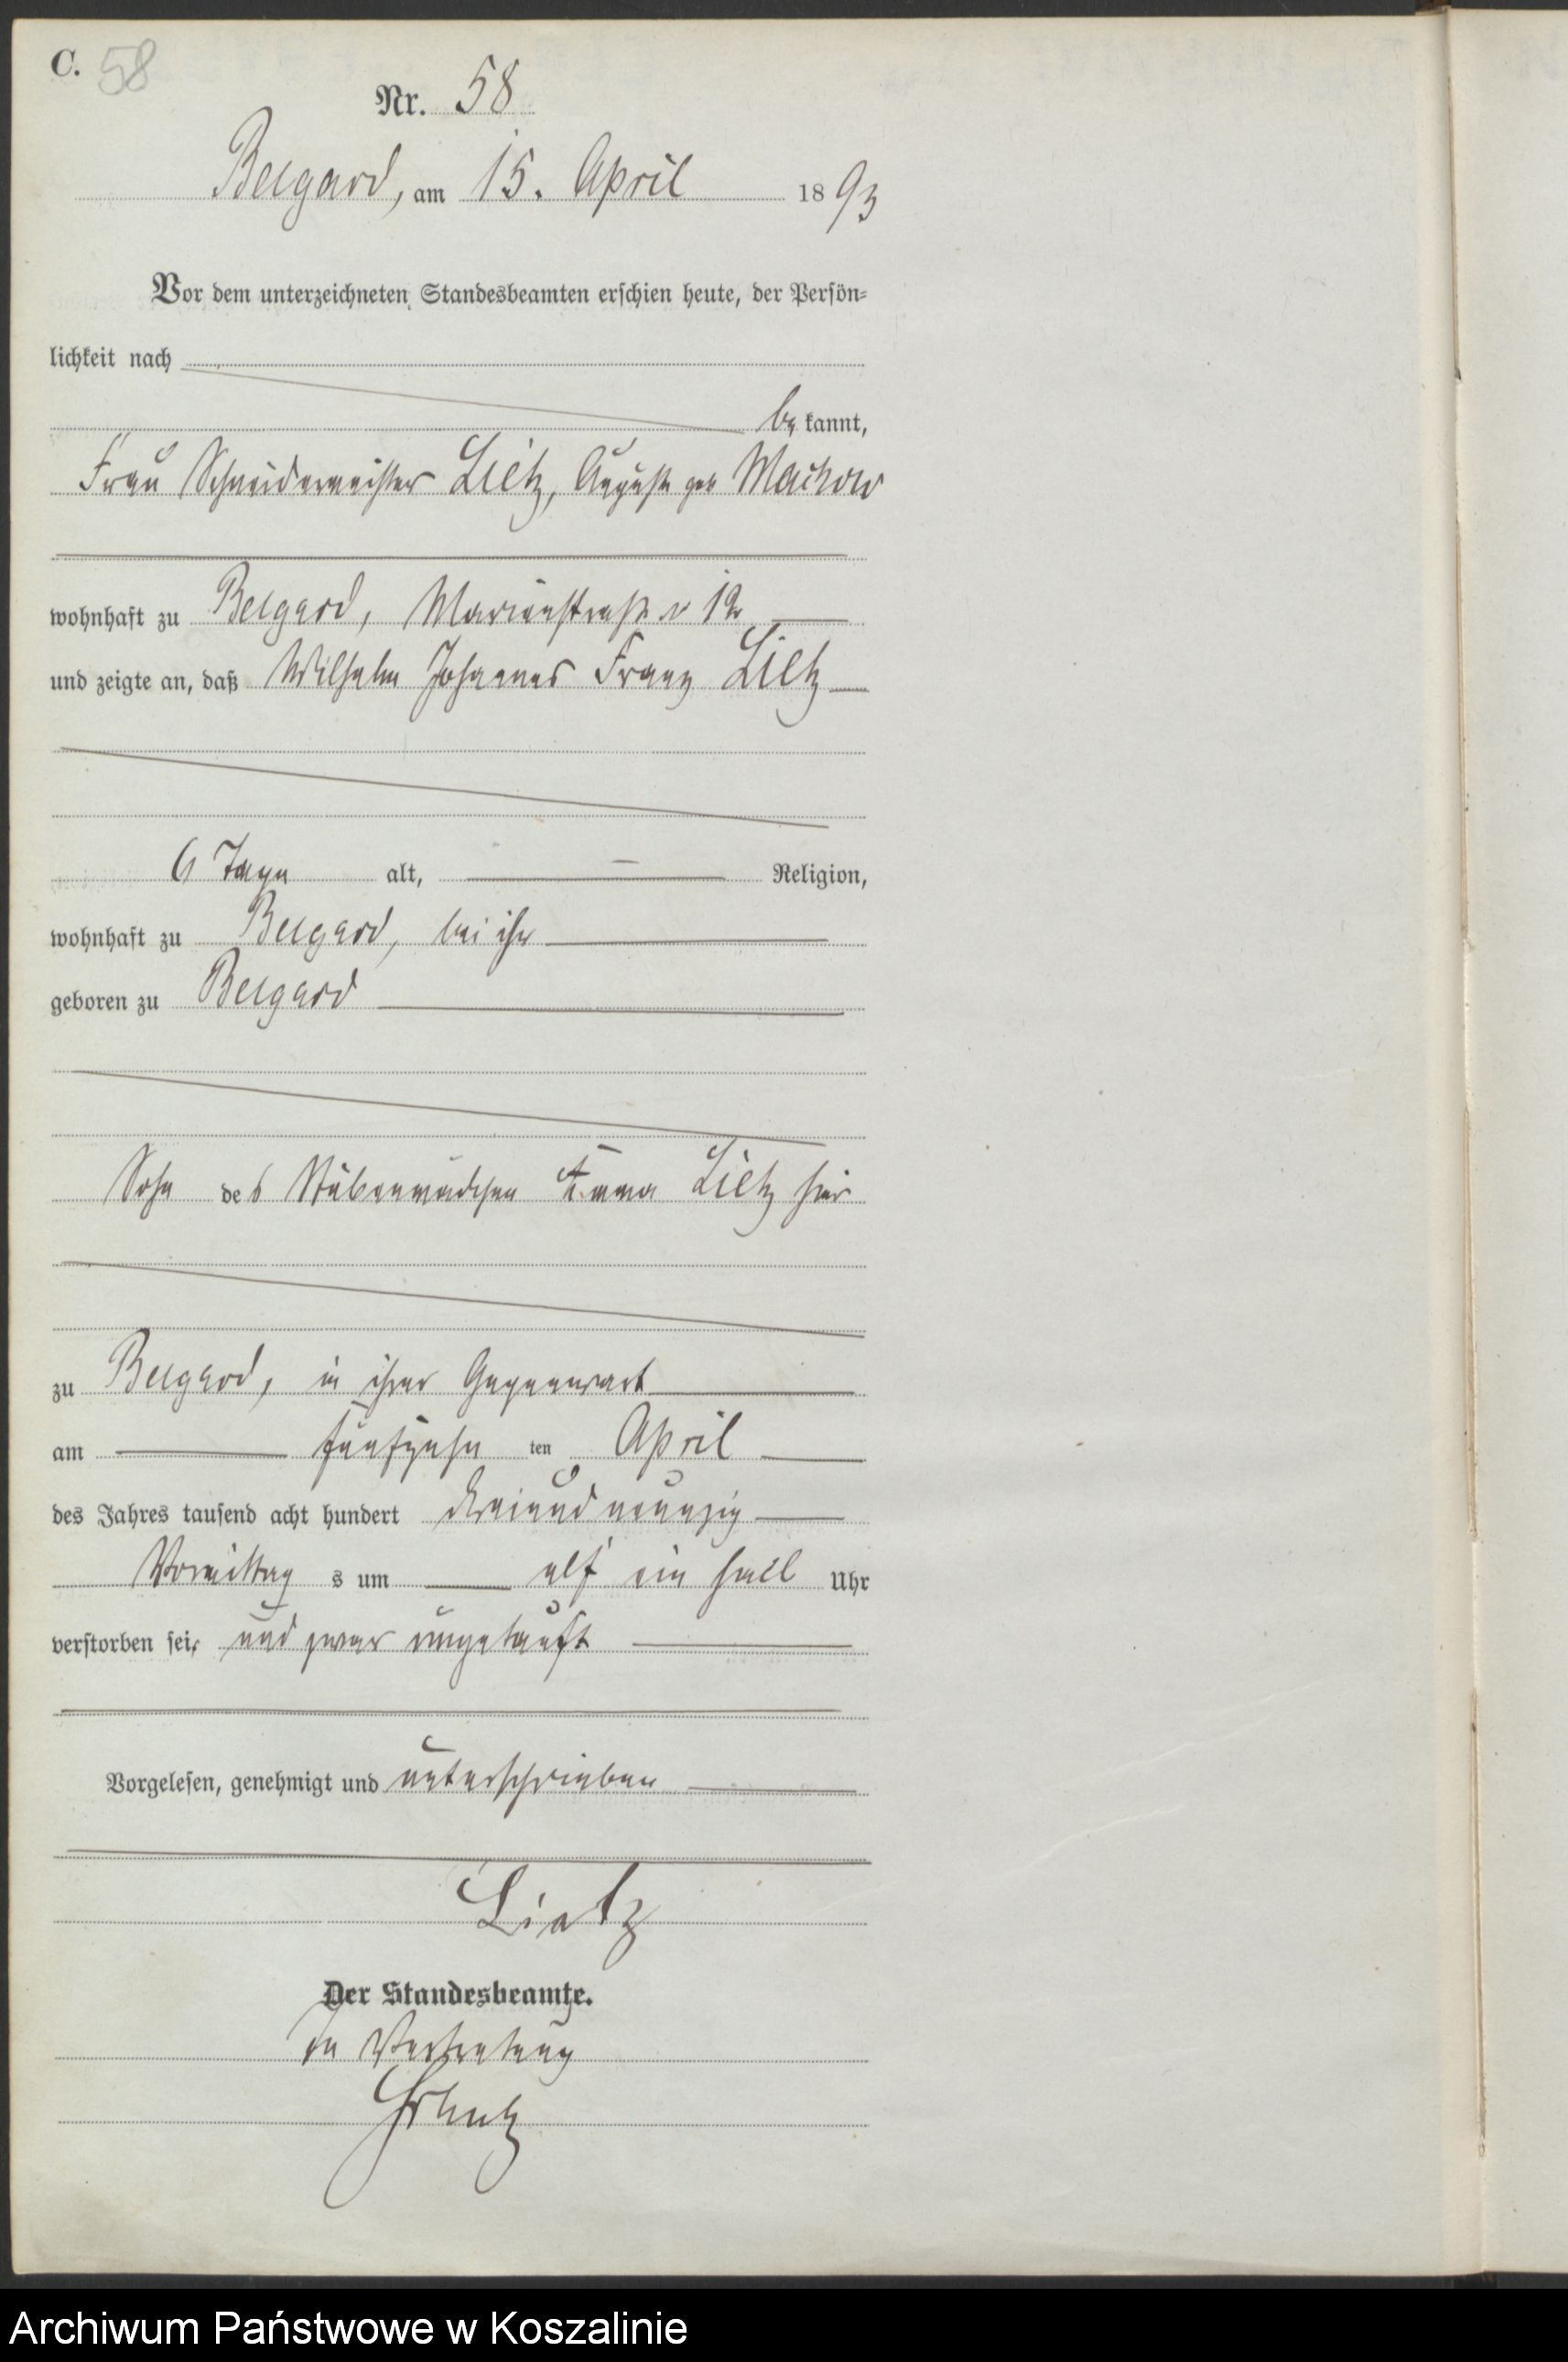 C. 58
Nr. 58
Belgard, am 15. April 1893
Vor dem unterzeichneten Standesbeamten erschien heute, der Persön-
lichkeit nach
bekannt,
Frau Schneidermeister Lietz, Auguste geb
wohnhaft zu Belgard, Marienstraße № 12
und zeigte an, daß Wilhelm Johannes Franz Lietz
6 Tage alt, Religion,
wohnhaft zu Belgard, bei ihr
geboren zu Belgard
Sohn des Stubenmädchen Emma Lietz hier
zu Belgard, in ihrer Gegenwart
am fünfzehn ten April
des Jahres tausend acht hundert dreiundneunzig
Vormittag s um elf ein halb Uhr
verstorben sei, und zwar ungetauft
Vorgelesen, genehmigt und unterschrieben
Lietz
Der Standesbeamte.
In Vertretung
Archiwum Państwowe w Koszalinie